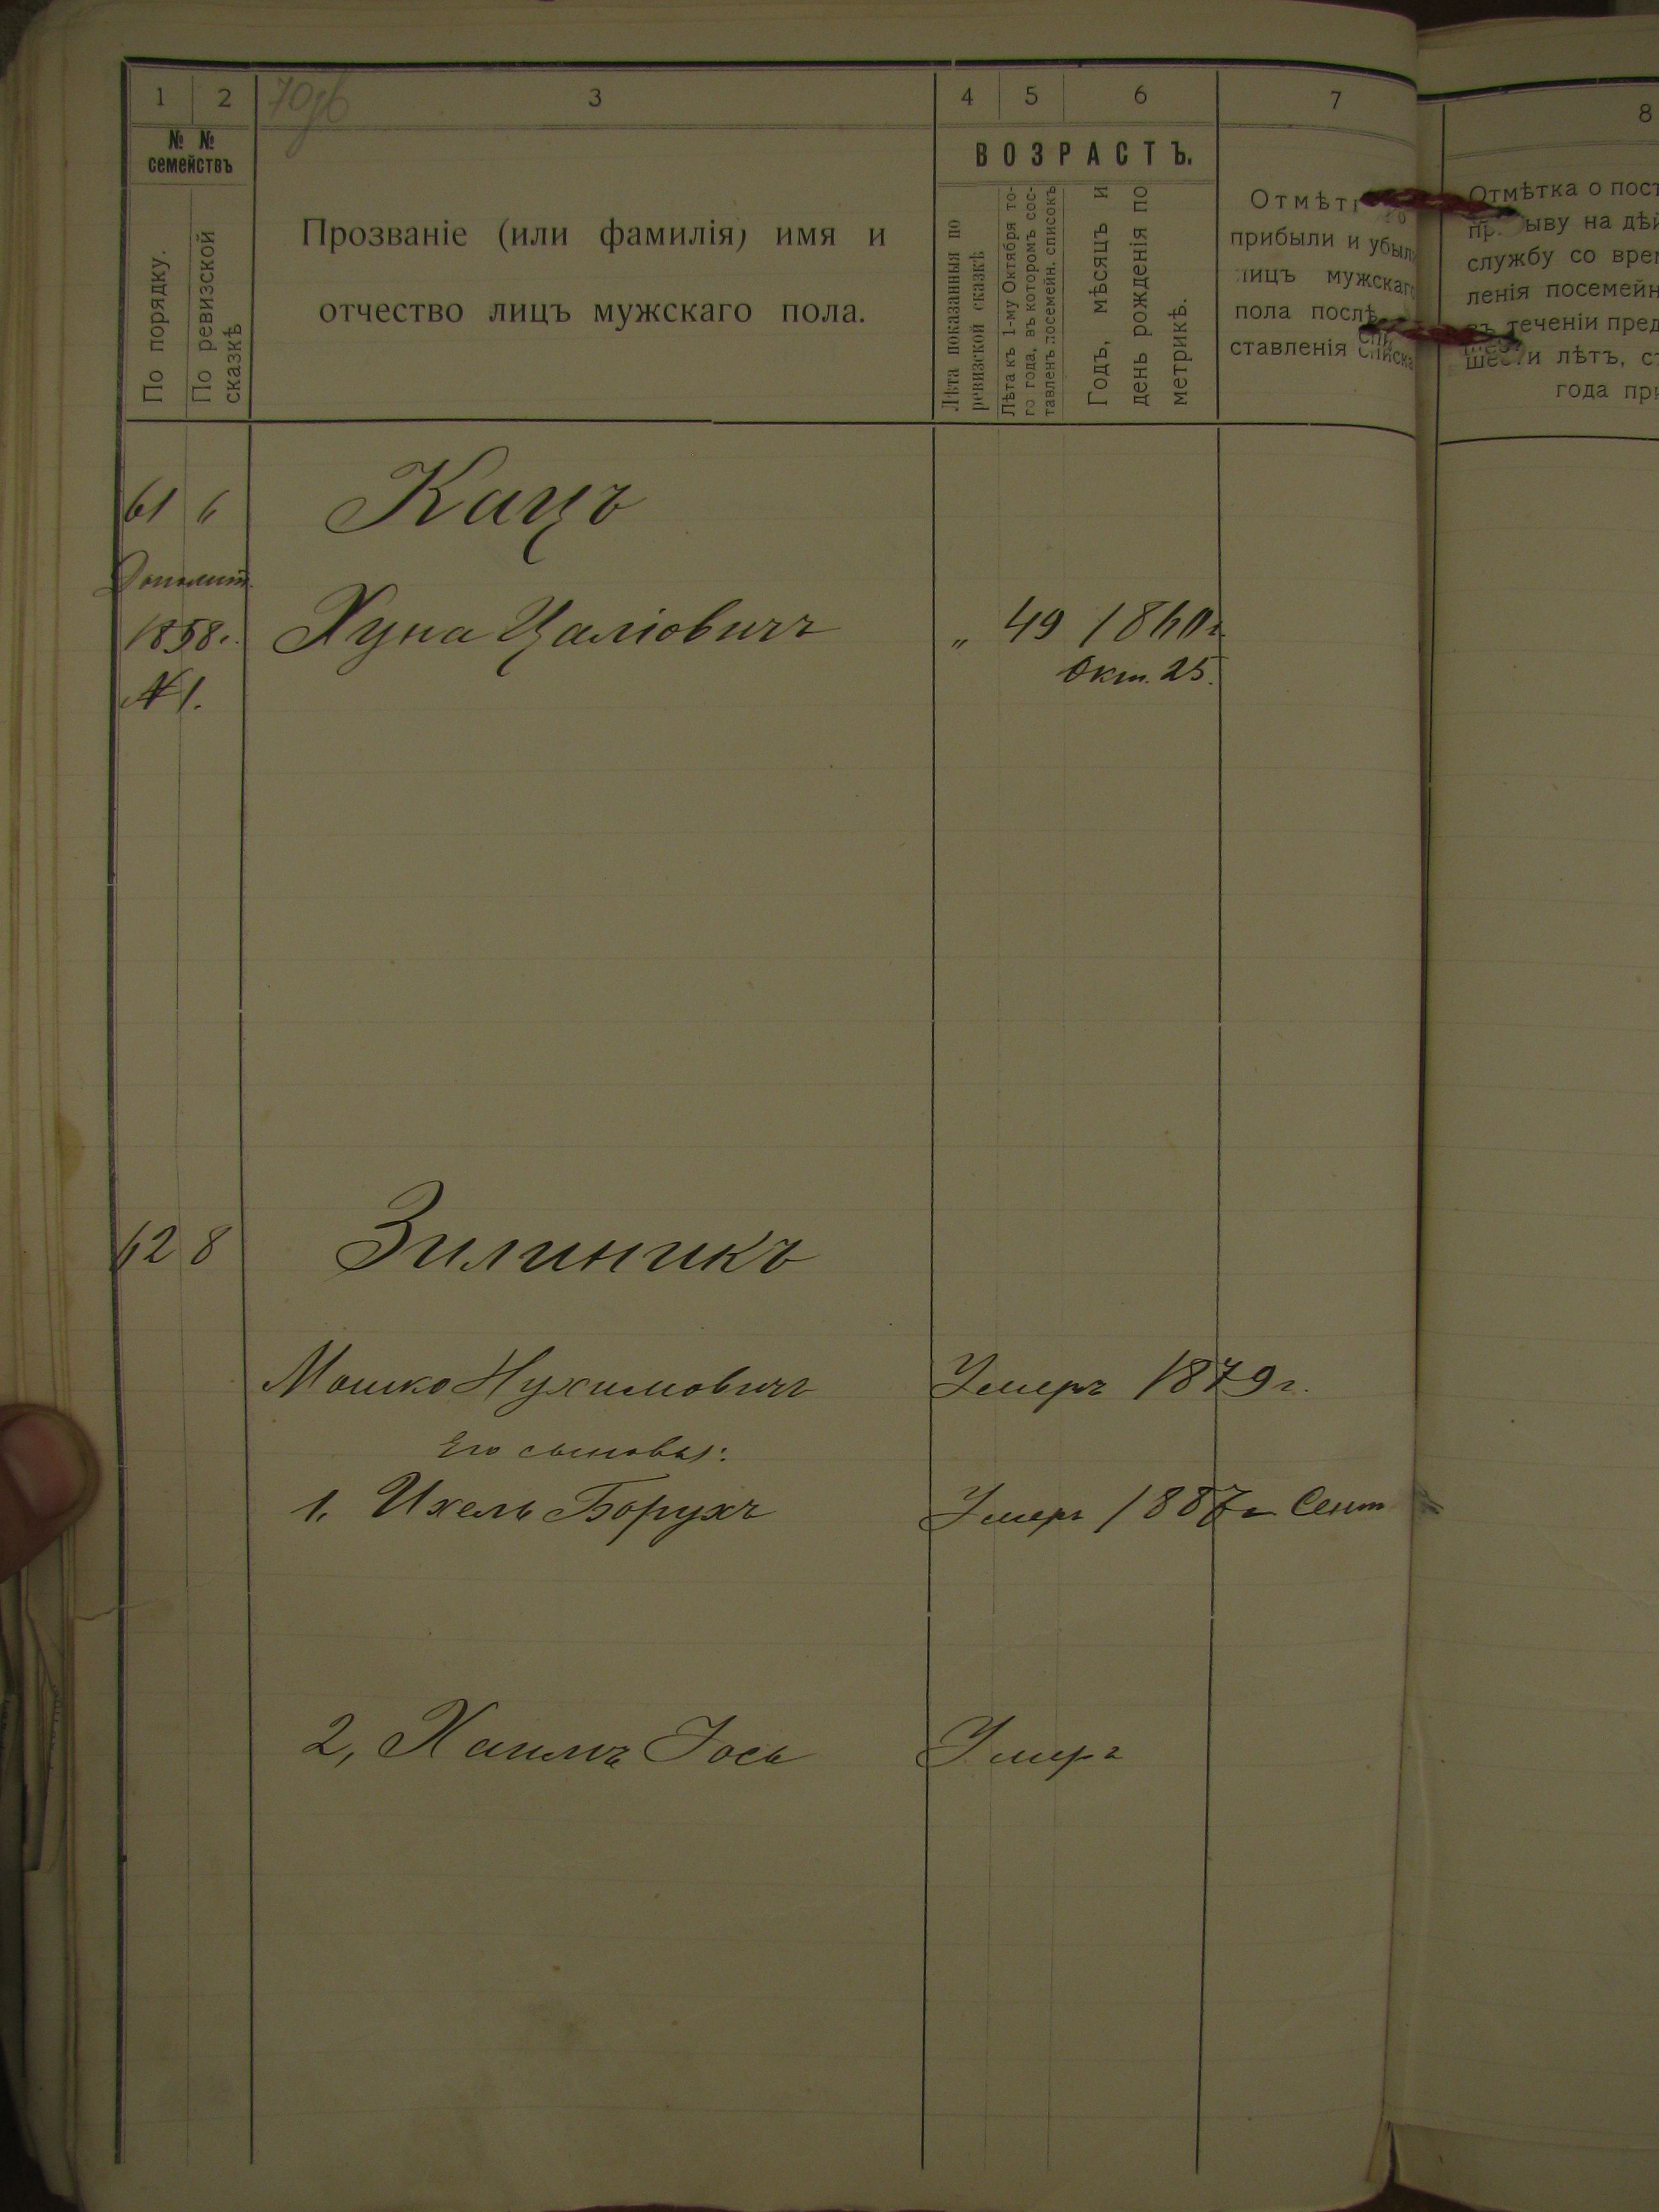 1 2 3 4 5 6 7
70об
№ № семействъ
По порядку.
По ревизской сказкѣ
Прозваніе (или фамилія) имя и
отчество лицъ мужскаго пола.
ВОЗРАСТЪ.
Лѣта показанныя по
ревизской сказкѣ
Лѣта къ 1-му Октября то-
го года, въ которомъ сос-
тавленъ посемейн. списокъ
Годъ, мѣсяцъ и
день рожденія по
метрикѣ.
прибыли и убыли
лицъ мужскаго
пола послѣ
ставленія списка
8
Отмѣтка о пост
ыву на дѣй
службу со врем
ленія посемейн
въ теченіи пред
шести лѣтъ, съ
года при
61 6 Кацъ
Дополнит.
1858г. Хуна Цаліовичъ „ 49 1860г
Окт. 25.
№ 1.
62 8 Зилиникъ
Мошко Нухимовичъ Умеръ 1879г.
Его сыновья:
1. Ихель Борухъ Умеръ 1887г Сент
2, Хаимъ Іось Умеръ